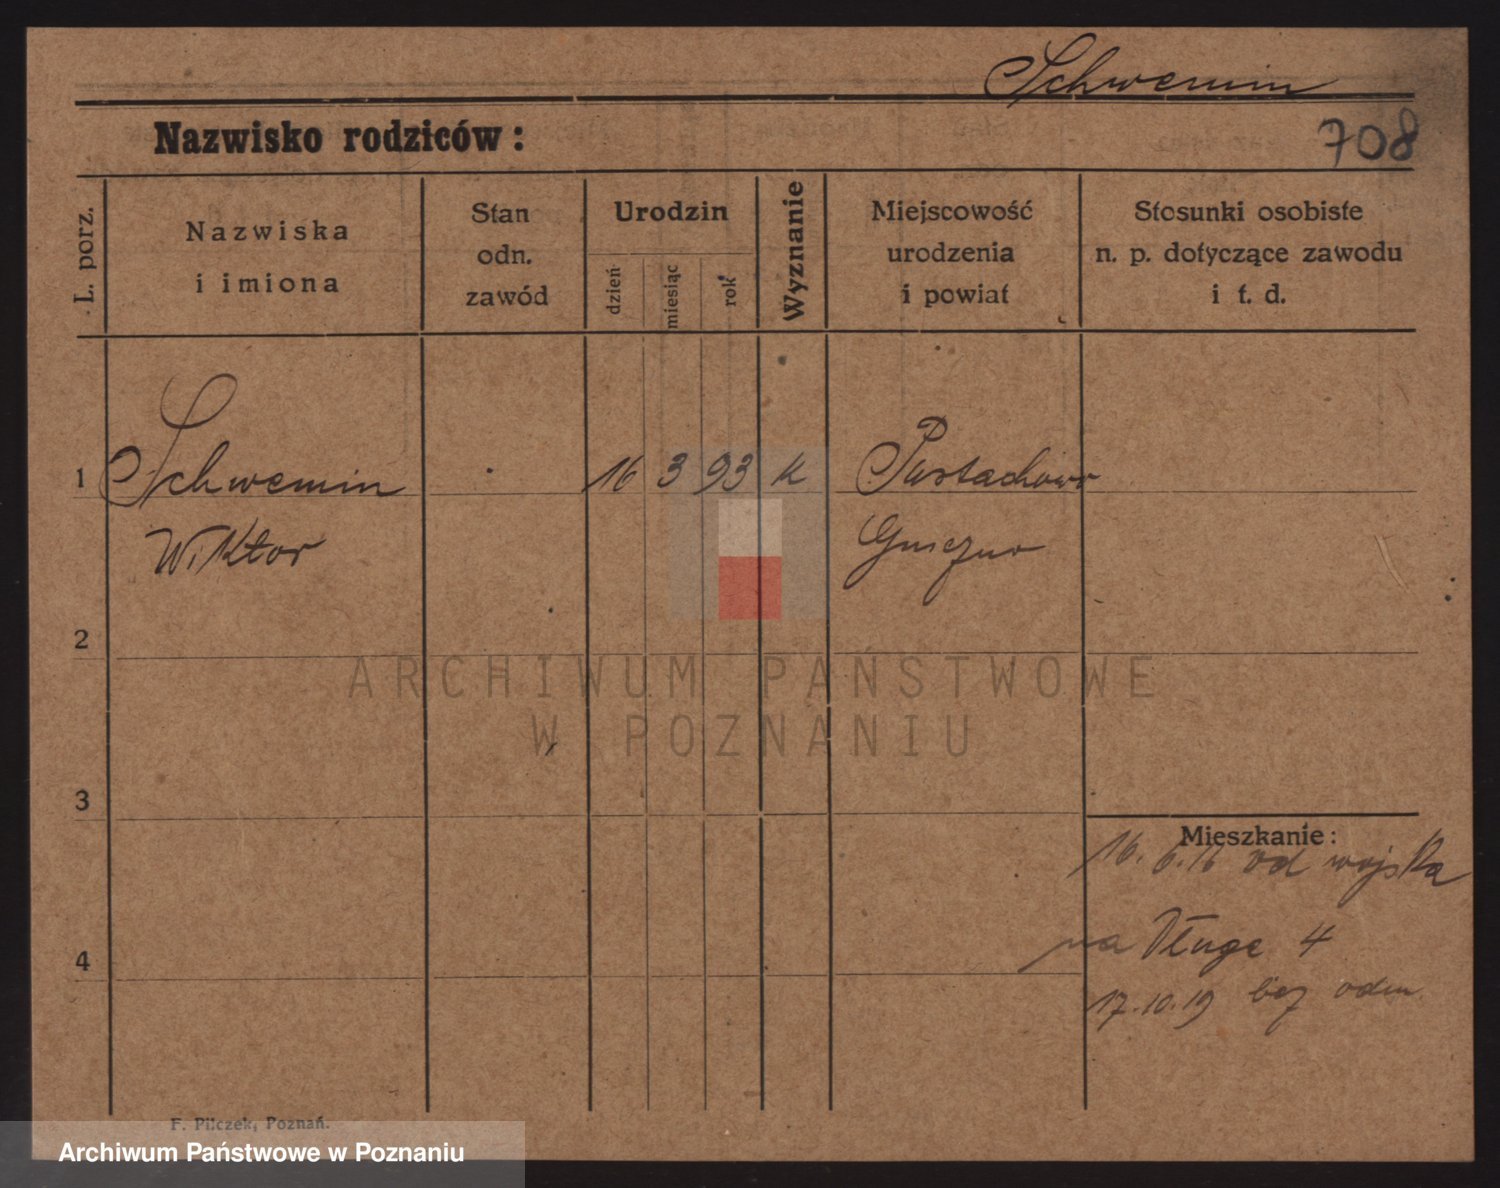 Schwemin
Nazwisko rodziców:
708
L. porz.
Nazwiska
i imiona
Stan
odn.
zawód
Urodzin
dzień
miesiąc
rok
Wyznanie
Miejscowość
urodzenia
i powiat
Stosunki osobiste
n. p. dotyczące zawodu
i t. d.
1
Schwemin
16 3 93 k
Pustachowo
Wiktor
Gniezno
2
ARCHIWUM PAŃSTWOWE
W POZNANIU
3
Mieszkanie:
16. 6. 16 od wojska
na Długe 4
4
17.10.19 bez odm
F. Pilczek, Poznań.
Archiwum Państwowe w Poznaniu